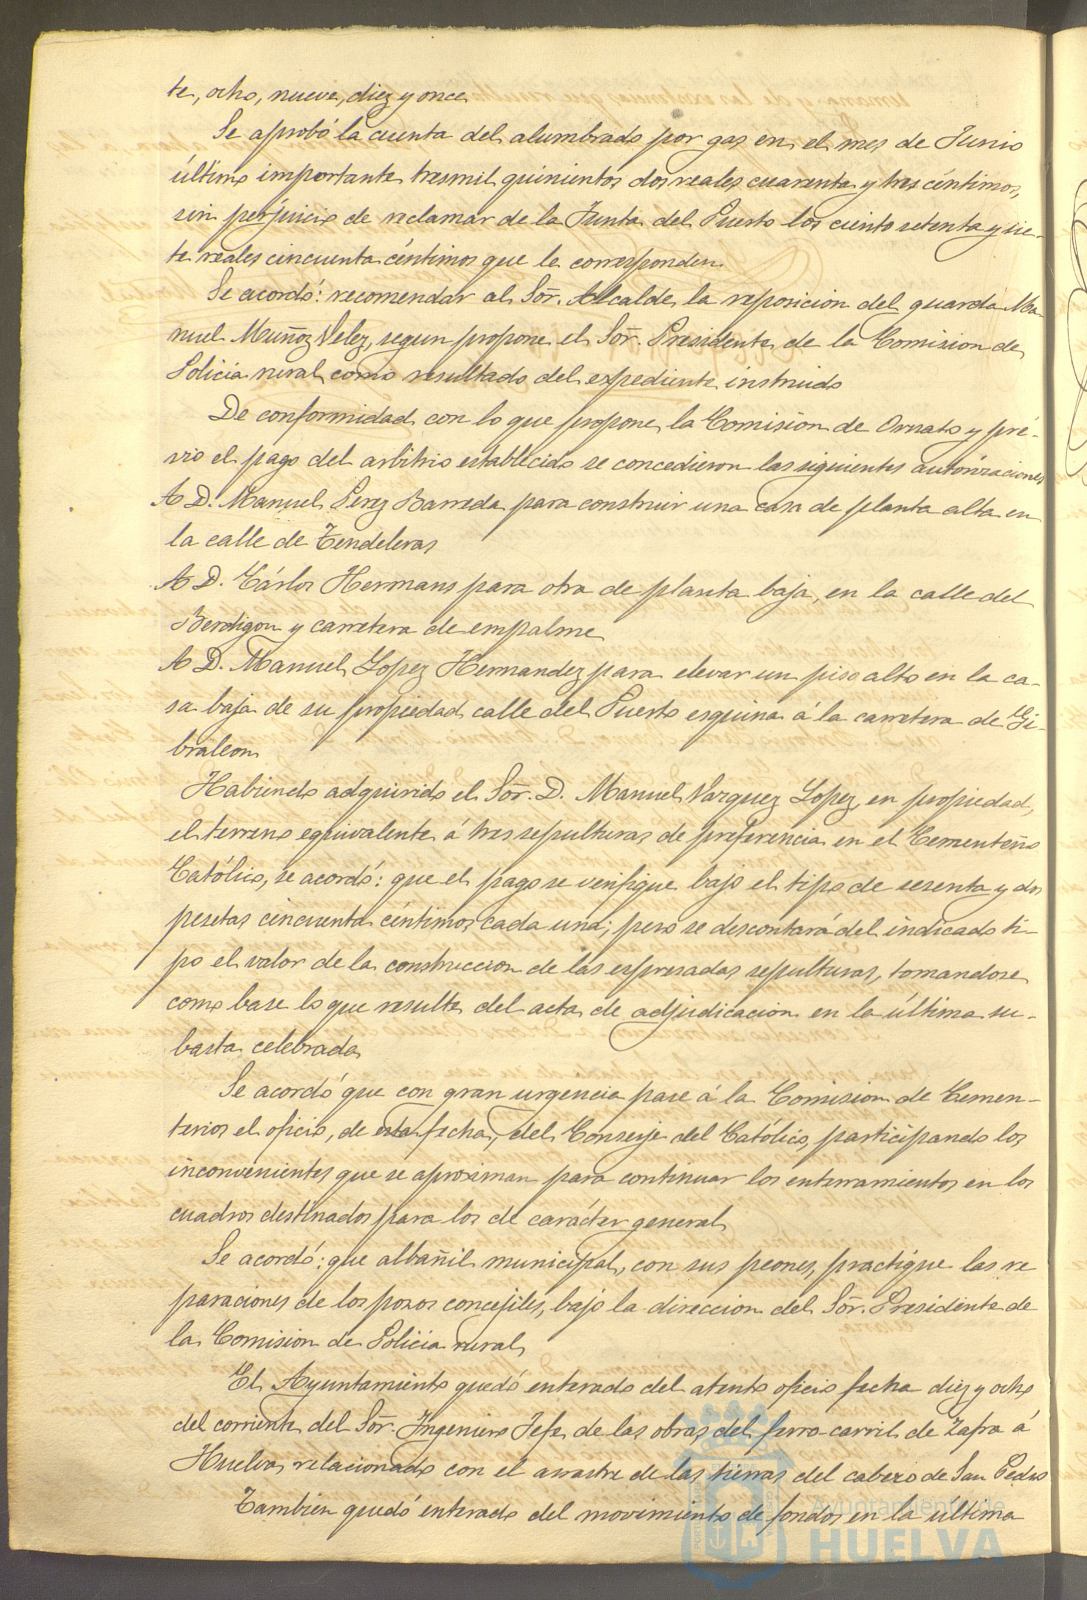 te, ocho, nueve, diez y once
Se aprobó la cuenta del alumbrado por gas en el mes de Junio
último importante tresmil quinientos dos reales cuarenta y tres céntimos,
sin perjuicio de reclamar de la Junta del Puerto los ciento setenta y sie-
te reales cincuenta céntimos que le corresponden
Se acordó: recomendar al Sor. Alcalde la reposicion del guarda Ma-
nuel Muñoz Velez, segun propone el Sor. Presidente de la Comision de
Policia rural como resultado del expediente instruido
De conformidad con lo que propone la Comision de Ornato y pré-
vio el pago del arbitrio establecido se concedieron las siguientes autorizaciones
A D. Manuel Perez Barreda para construir una casa de planta alta en
la calle de Tendeleras
A D. Cárlos Hermans para otra de planta baja, en la calle del
Berdigon y carretera de empalme
A D. Manuel Lopez Hernandez para elevar un piso alto en la ca-
sa baja de su propiedad calle del Puerto esquina á la carretera de Gi-
braleon
Habiendo adquirido el Sor. D. Manuel Vazquez Lopez, en propiedad,
el terreno equivalente á tres sepulturas de preferencia en el Cementerio
Católico, se acordó: que el pago se verifique bajo el tipo de sesenta y dos
pesetas cincuenta céntimos cada una; pero se descontará del indicado ti-
po el valor de la construccion de las espresadas sepulturas, tomandose
como base lo que resulte del acta de adjudicacion en la última su-
basta celebrada
Se acordó que con gran urgencia pase á la Comision de Cemen-
terios el oficio, de esta fecha, del Conserje del Católico, participando los
inconvenientes que se aproximan para continuar los enterramientos en los
cuadros destinados para los de carácter general
Se acordó: que albañil municipal, con sus peones, practique las re
paraciones de los pozos concejiles, bajo la direccion del Sor. Presidente de
la Comision de Policia rural
El Ayuntamiento quedó enterado del atento oficio fecha diez y ocho
del corriente del Sor. Ingeniero Jefe de las obras del ferro-carril de Zafra á
Huelva, relacionado con el arrastre de las tierras del cabezo de San Pedro
Tambien quedó enterado del movimiento de fondos en la última
Ayuntamiento de
HUELVA